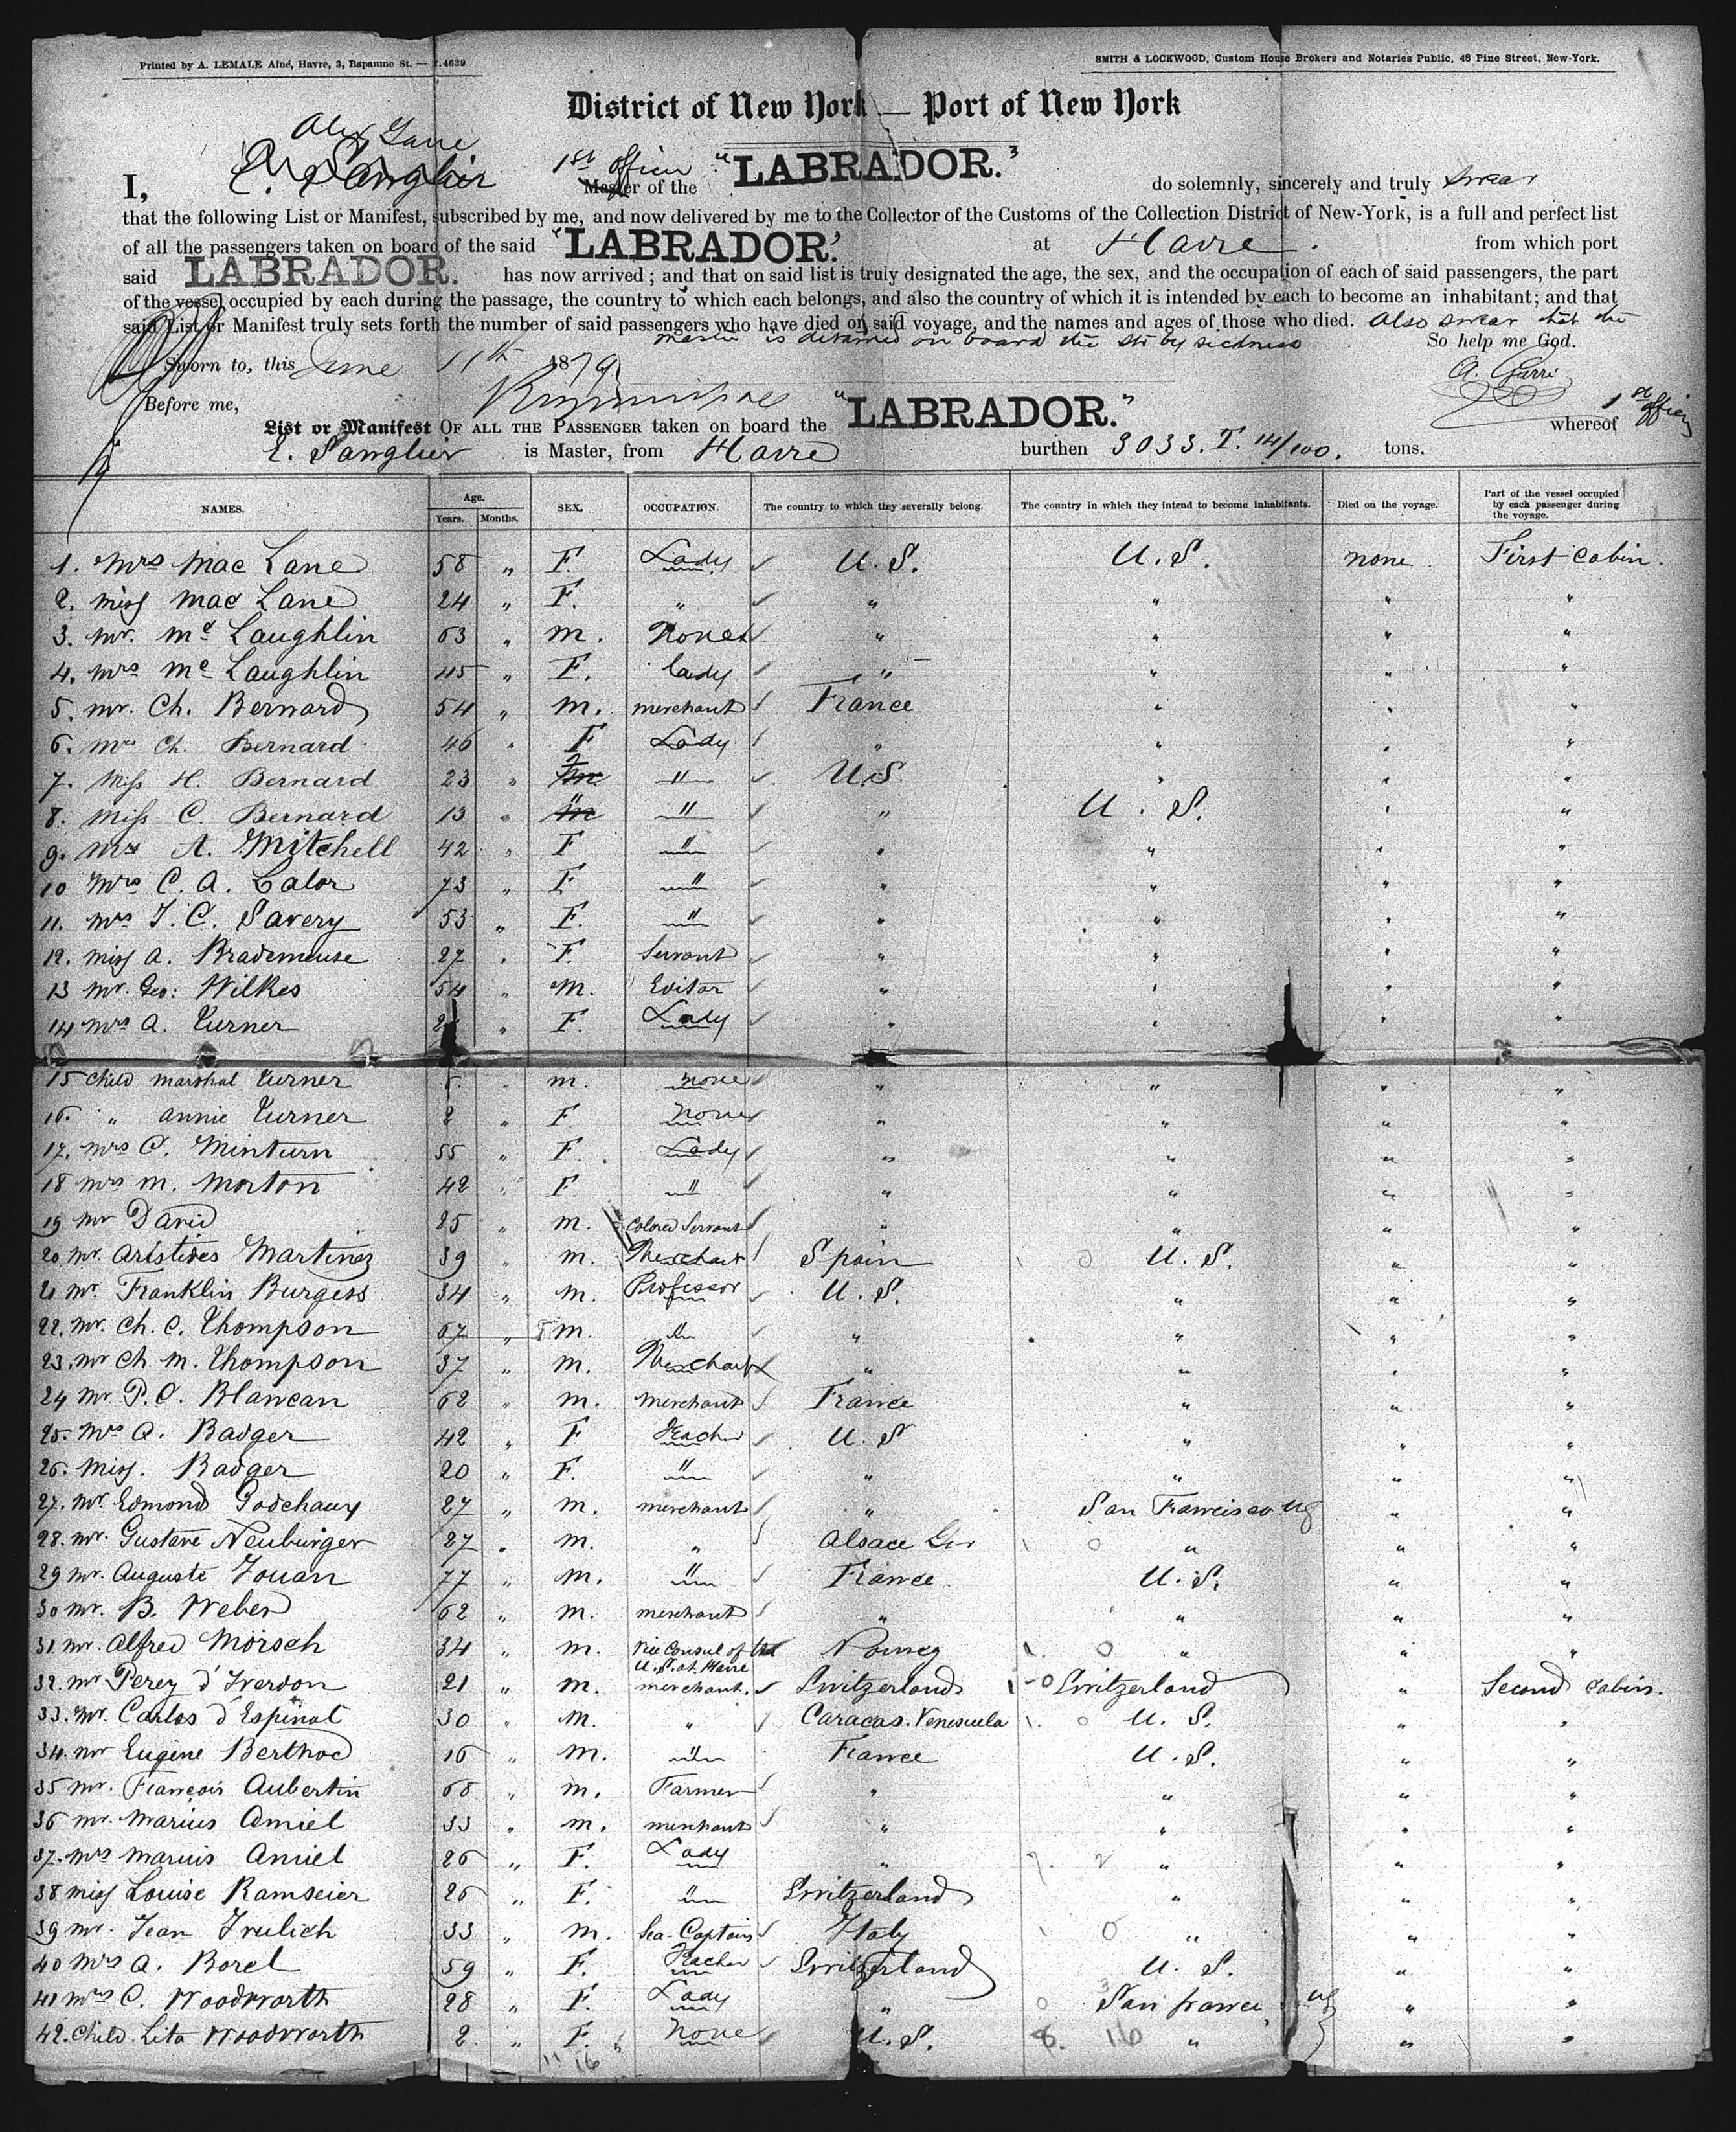 Printed by A. LEMALE Aîné, Havre, 3, Bapaume St. — 7.4629
SMITH & LOCKWOOD, Custom House Brokers and Notaries Public, 48 Pine Street, New-York.
District of New York — Port of New York
I, E. Sanglier 1st officer Master of the "LABRADOR." do solemnly, sincerely and truly swear
that the following List or Manifest, subscribed by me, and now delivered by me to the Collector of the Customs of the Collection District of New-York, is a full and perfect list
of all the passengers taken on board of the said "LABRADOR." at Havre. from which port
said LABRADOR. has now arrived ; and that on said list is truly designated the age, the sex, and the occupation of each of said passengers, the part
of the vessel occupied by each during the passage, the country to which each belongs, and also the country of which it is intended by each to become an inhabitant; and that
said List or Manifest truly sets forth the number of said passengers who have died on said voyage, and the names and ages of those who died. Also swear that the
master is detained on board the str by sickness So help me God.
Sworn to, this June 11th 1879
Before me,
1st officer
List or Manifest OF ALL THE PASSENGER taken on board the "LABRADOR." whereof
E. Sanglier is Master, from Havre burthen 3033. T. 14/100. tons.
NAMES. Age. Years. Months. SEX. OCCUPATION. The country to which they severally belong. The country in which they intend to become inhabitants. Died on the voyage. Part of the vessel occupied by each passenger during the voyage.
1. Mrs Mac Lane 58 " F. Lady U. S. U. S. none. First cabin.
2. Miss Mac Lane 24 " F. " " " " "
3. Mr. Mc Laughlin 63 " m. None " " " "
4. Mrs Mc Laughlin 45 " F. Lady " " " "
5. Mr. Ch. Bernard 54 " m. merchant France " " "
6. Mrs Ch. Bernard 46 " F Lady " " " "
7. Miss H. Bernard 23 " F " U.S. " " "
8. Miss C. Bernard 13 " " " " U. S. " "
9. Mrs A. Mitchell 42 " F " " " " "
10 Mrs C. A. Calor 73 " F. " " " " "
11. Mrs J. C. Savery 53 " F. " " " " "
12. Miss A. Brademeuse 27 " F. Servant " " " "
13 Mr. Geo: Wilkes 54 " M. Editor " " " "
14 Mrs A. Turner " F. Lady " " " "
15 Child Marshal Turner " m. none " " " "
16. " Annie Turner 2 " F none " " " "
17. Mrs C. Minturn 55 " F. Lady " " " "
18 Mrs M. Morton 42 " F. " " " " "
19 Mr David 25 " m. Colored Servant " " " "
20. Mr. Aristides Martinez 39 " m. Merchant Spain U. S. " "
21 Mr. Franklin Burgess 34 " m. Professor U. S. " " "
22. Mr. Ch. C. Thompson 67 " m. " " " " "
23. Mr Ch. M. Thompson 37 " m. Merchant " " " "
24 Mr P. C. Blancan 62 " m. merchant France " " "
25. Mrs A. Badger 42 " F Teacher U. S " " "
26. Miss. Badger 20 " F. " " " " "
27. Mr. Edmond Godchaux 27 " m. merchant " San Francisco US " "
28. Mr. Gustave Neuburger 27 " m. " Alsace Ger " " "
29 Mr. Auguste Jouan 77 " m. " France. U. S. " "
30 Mr. B. Weber 62 " m. merchant " " " "
31. Mr. Alfred Mörsch 34 " m. Vice Consul of the U. S. at Havre Norveg " " "
32. Mr Perey d'Iverdon 21 " m. merchant. Switzerland Switzerland " Second cabin.
33. Mr. Carlos d'Espinal 30 " m. " Caracas. Venesuela U. S. " "
34. Mr Eugène Berthod 16 " m. " France U. S. " "
35 Mr. François Aubertin 68 " m. Farmer " " " "
36 Mr. Marius Amiel 33 " m. merchant " " " "
37. Mrs Marius Amiel 26 " F. Lady " " " "
38 Miss Louise Ramseier 26 " F. " Switzerland " " "
39 Mr. Jean Ivulich 33 " m. Sea-Captain Italy " " "
40 Mrs A. Borel 59 " F. Teacher Switzerland U. S. " "
41 Mrs C. Woodworth 28 " F. Lady " San france US " "
42. Child. Lita Woodworth 2 " F. none U. S. " " "
11 16 8. 16